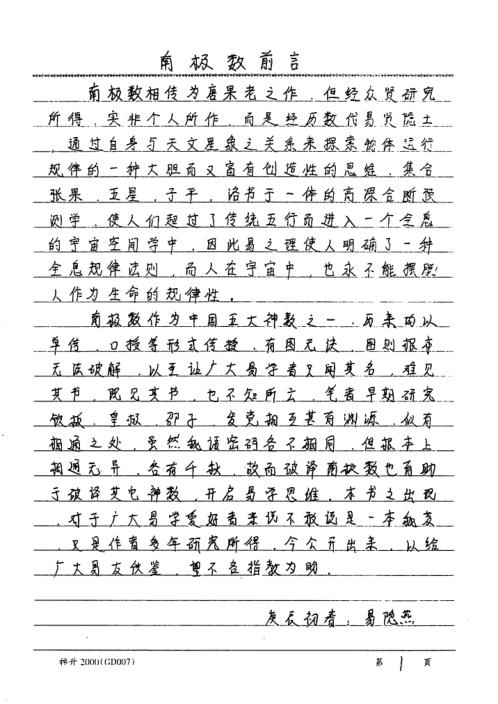 南极数前言
南极数相传为唐果老之作，但经众贤研究
所得，实非个人所作，而是经历数代易贤隐士
，通过自身与天文星象之关系来探索物体运行
规律的一种大胆而又富有创造性的思维，集合
张果，五星，子平，洛书于一体的高深合断预
测学，使人们超过了传统五行而进入一个全息
的宇宙空间学中，因此易之理使人明确了一种
全息规律法则，而人在宇宙中，也永不能摆脱
人作为生命的规律性。
南极数作为中国五大神数之一，历来均以
单传，口授等形式传授，有图无诀，图则根本
无法破解，以至让广大易学者只闻其名，难见
其书，既见其书，也不知所云，笔者早期研究
铁板，皇极，邵子，发觉相互甚有渊源，似有
相通之处，虽然秘语密码各不相同，但根本上
相通无异，各有千秋，故而破译南极数也有助
于破译其它神数，开启易学思维，本书之出现
，对于广大易学爱好者来说不敢说是一本秘笈
，又是作者多年研究所得，今公开出来，以给
广大易友伙鉴，望不吝指教为盼。
庚辰初春；易隐燕
梓升2000(GD007)
第 1 页